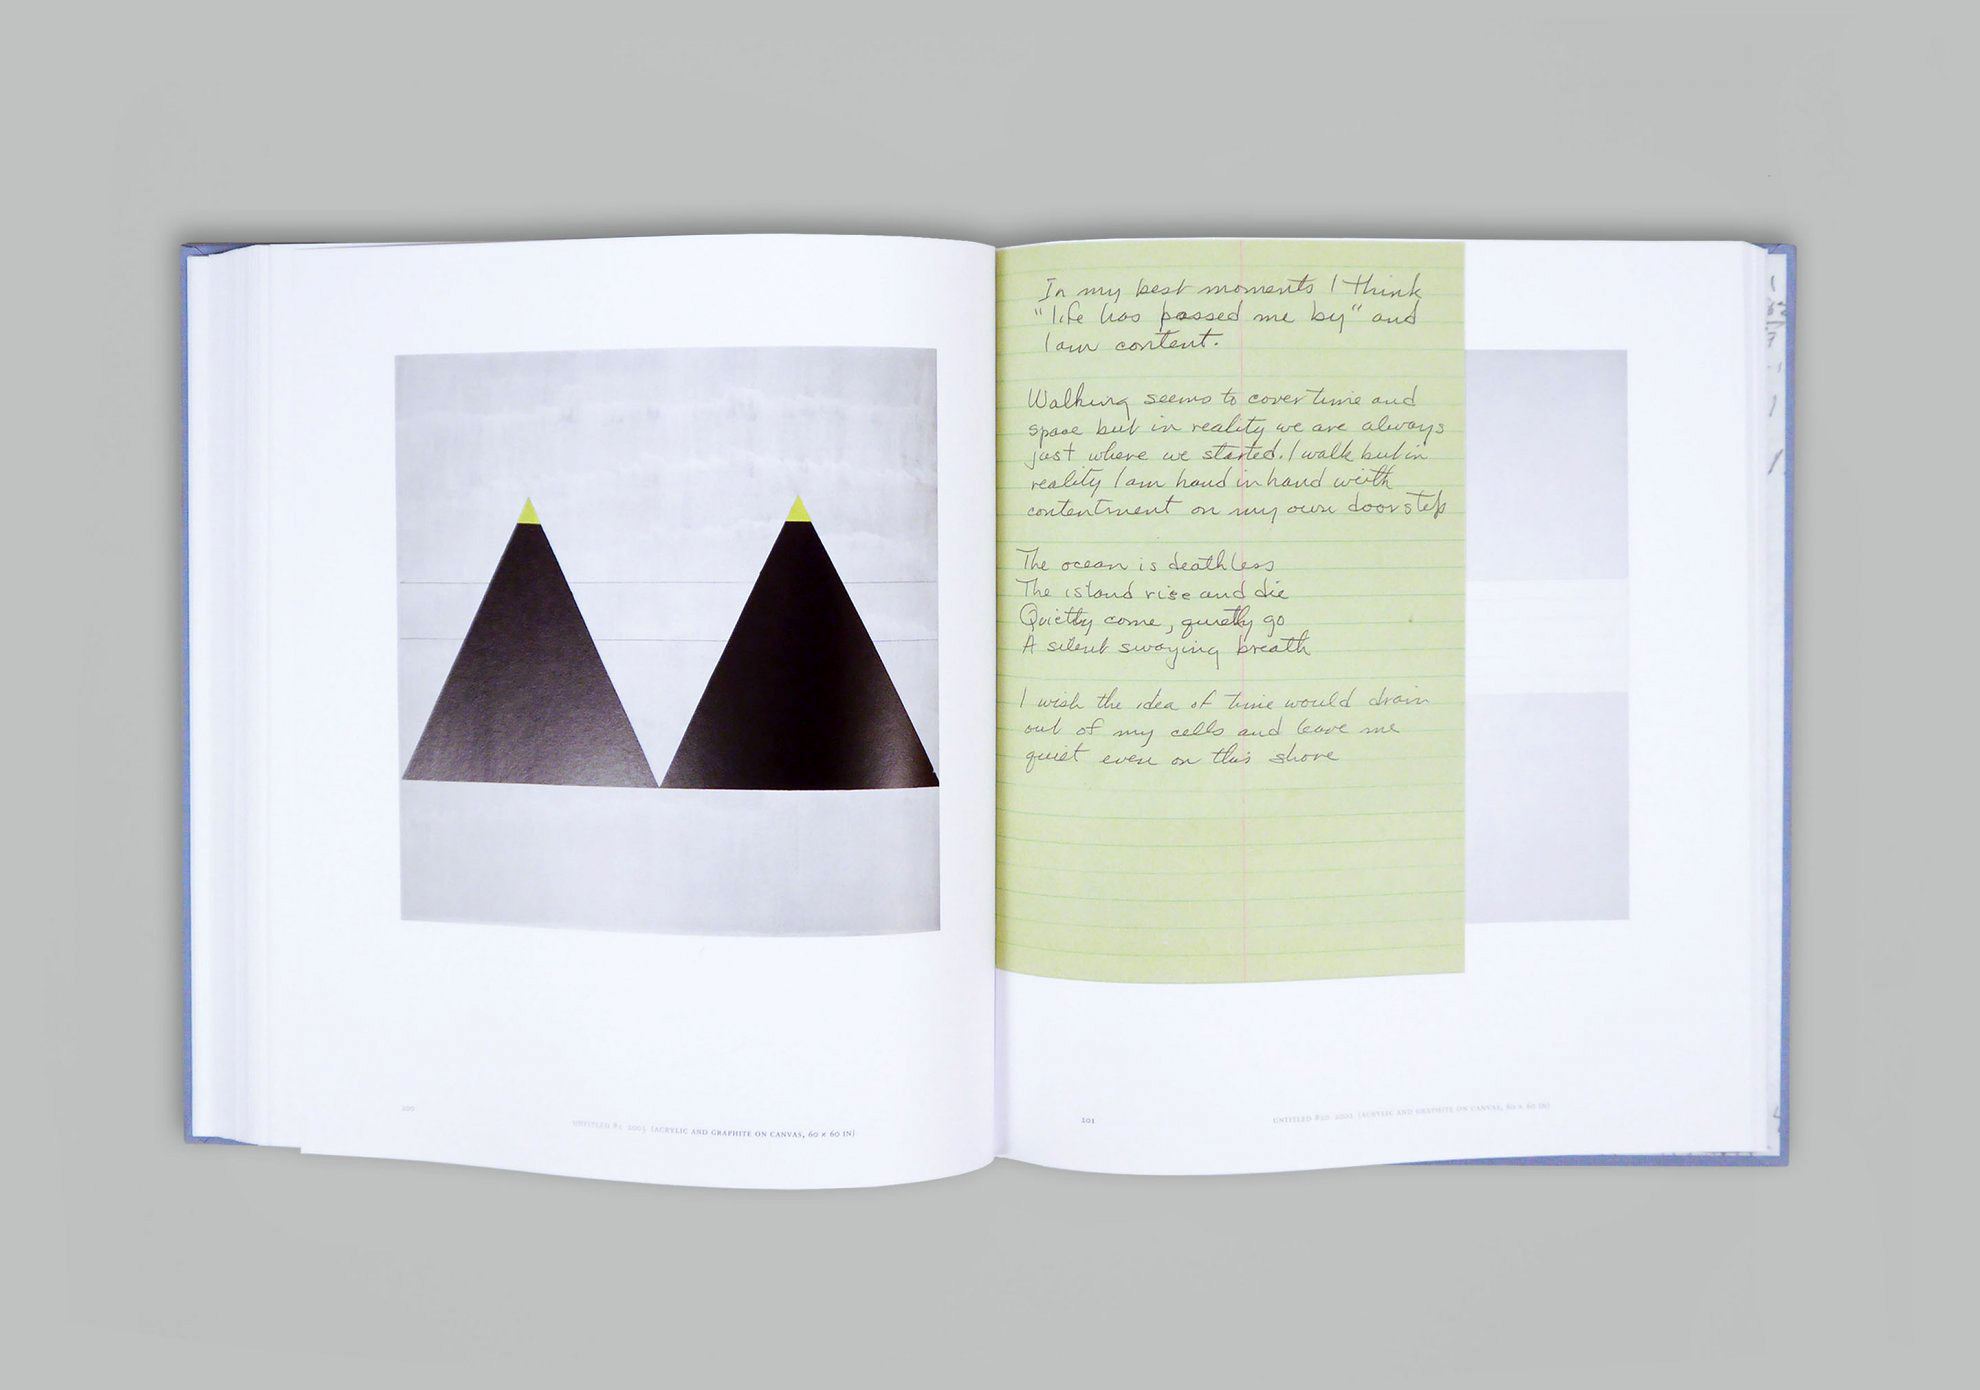 In my best moments I think
"life has passed me by" and
I am content.
Walking seems to cover time and
space but in reality we are always
just where we started. I walk but in
reality I am hand in hand with
contentment on my own door step
The ocean is deathless
The island rise and die
Quietly come, quietly go
A silent swaying breath
I wish the idea of time would drain
out of my cells and leave me
quiet even on this shore
200
UNTITLED 2003 (ACRYLIC AND GRAPHITE ON CANVAS, 60 × 60 IN)
201
UNTITLED (ACRYLIC AND GRAPHITE ON CANVAS, 60 × 60 IN)